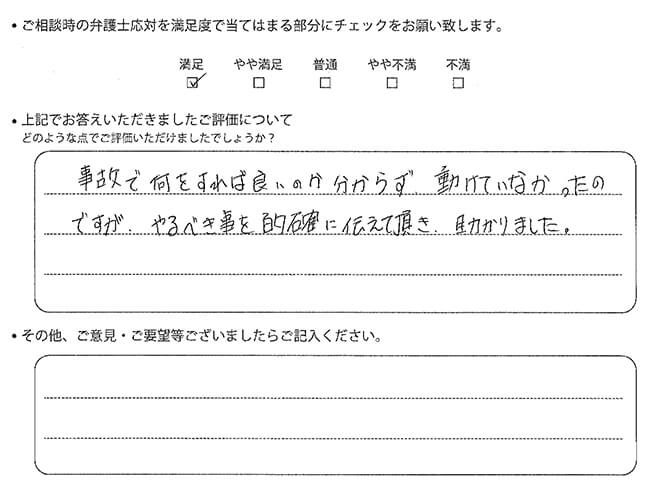 ・ご相談時の弁護士応対を満足度で当てはまる部分にチェックをお願い致します。
満足 やや満足 普通 やや不満 不満
☑ □ □ □ □
・上記でお答えいただきましたご評価について
どのような点でご評価いただけましたでしょうか？
事故で何をすれば良いのか分からず動けていなかったの
ですが、やるべき事を的確に伝えて頂き、助かりました。
・その他、ご意見・ご要望等ございましたらご記入ください。